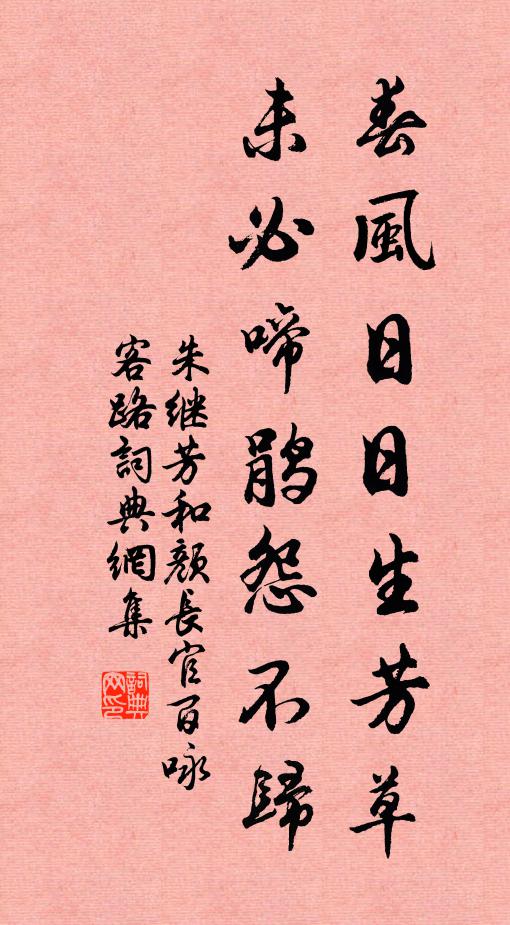 春風日日生芳草
未必啼鵑怨不歸
朱继芳和顏長官百咏
客路詞典網集
詞典网印